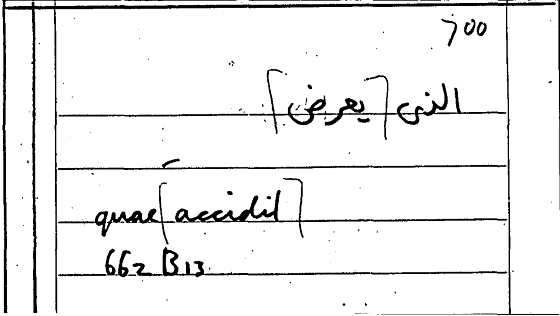 700
الذى [يعرض]
quae [accidit]
662 B13